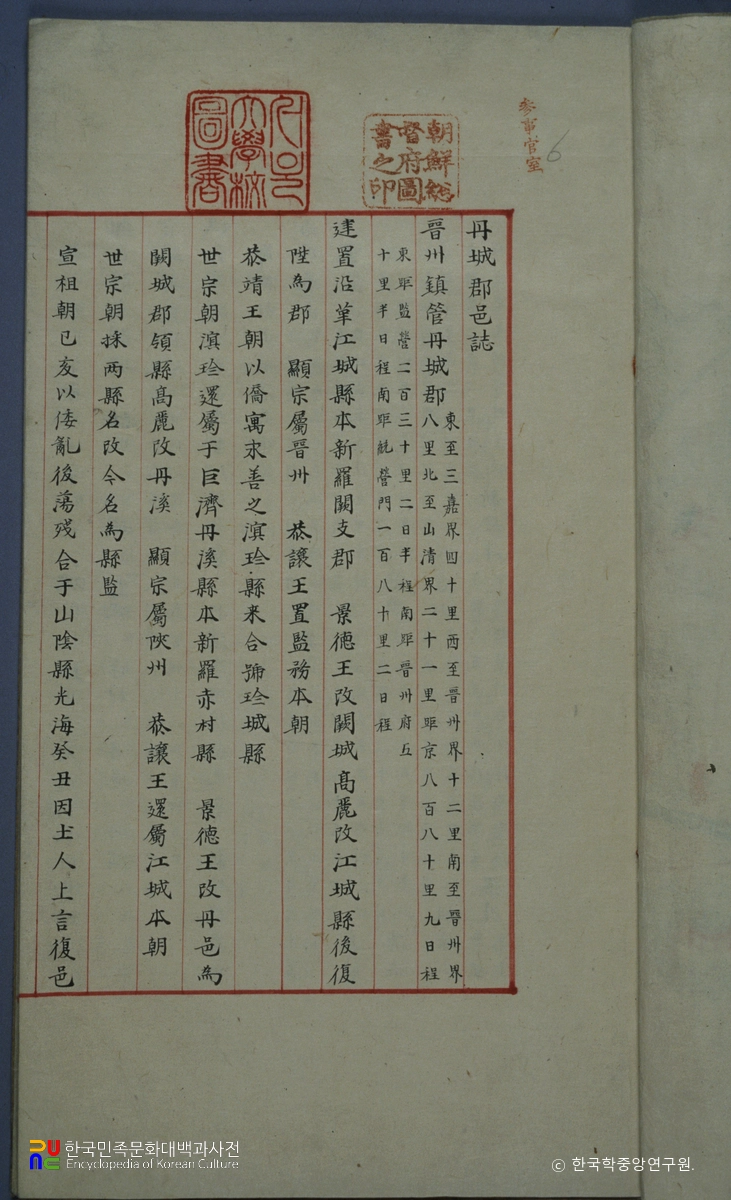 參事官室
6
朝鮮總
督府圖
書之印
大學校
圖書
丹城郡邑誌
晉州鎮管丹城郡 東至三嘉界四十里西至晉州界十二里南至晉州界
八里北至山清界二十一里距京八百八十里九日程
東距監營二百三十里二日半程南距晉州府五
十里半日程南距統營門一百八十里二日程
建置沿革江城縣本新羅闕支郡 景德王改闕城高麗改江城縣後復
陞為郡 顯宗屬晉州 恭讓王置監務本朝
恭靖王朝以僑寓永善之溟珍縣来合號珍城縣
世宗朝溟珍還屬于巨濟丹溪縣本新羅赤村縣 景德王改丹邑為
闕城郡領縣高麗改丹溪 顯宗屬陜州 恭讓王還屬江城本朝
世宗朝採两縣名改今名為縣監
宣祖朝已亥以倭亂後蕩残合于山陰縣光海癸丑因土人上言復邑
한국민족문화대백과사전
Encyclopedia of Korean Culture
© 한국학중앙연구원.